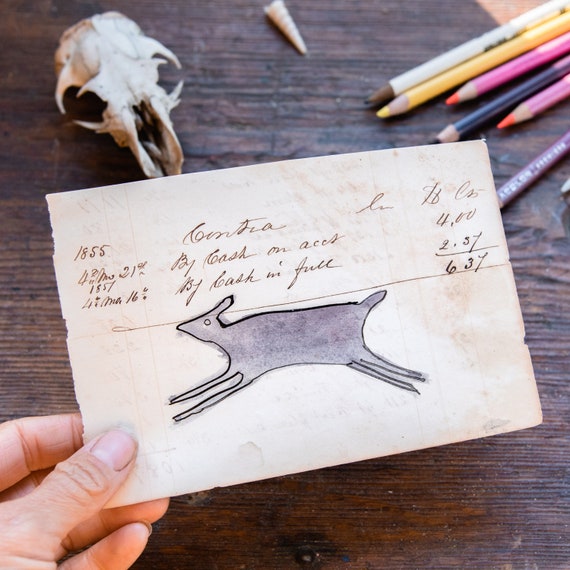 Contra Cr D Cts
1855
4th Mo 21st By Cash on acct 4.00
1857
4th Mo 16th By Cash in full 2.37
6.37